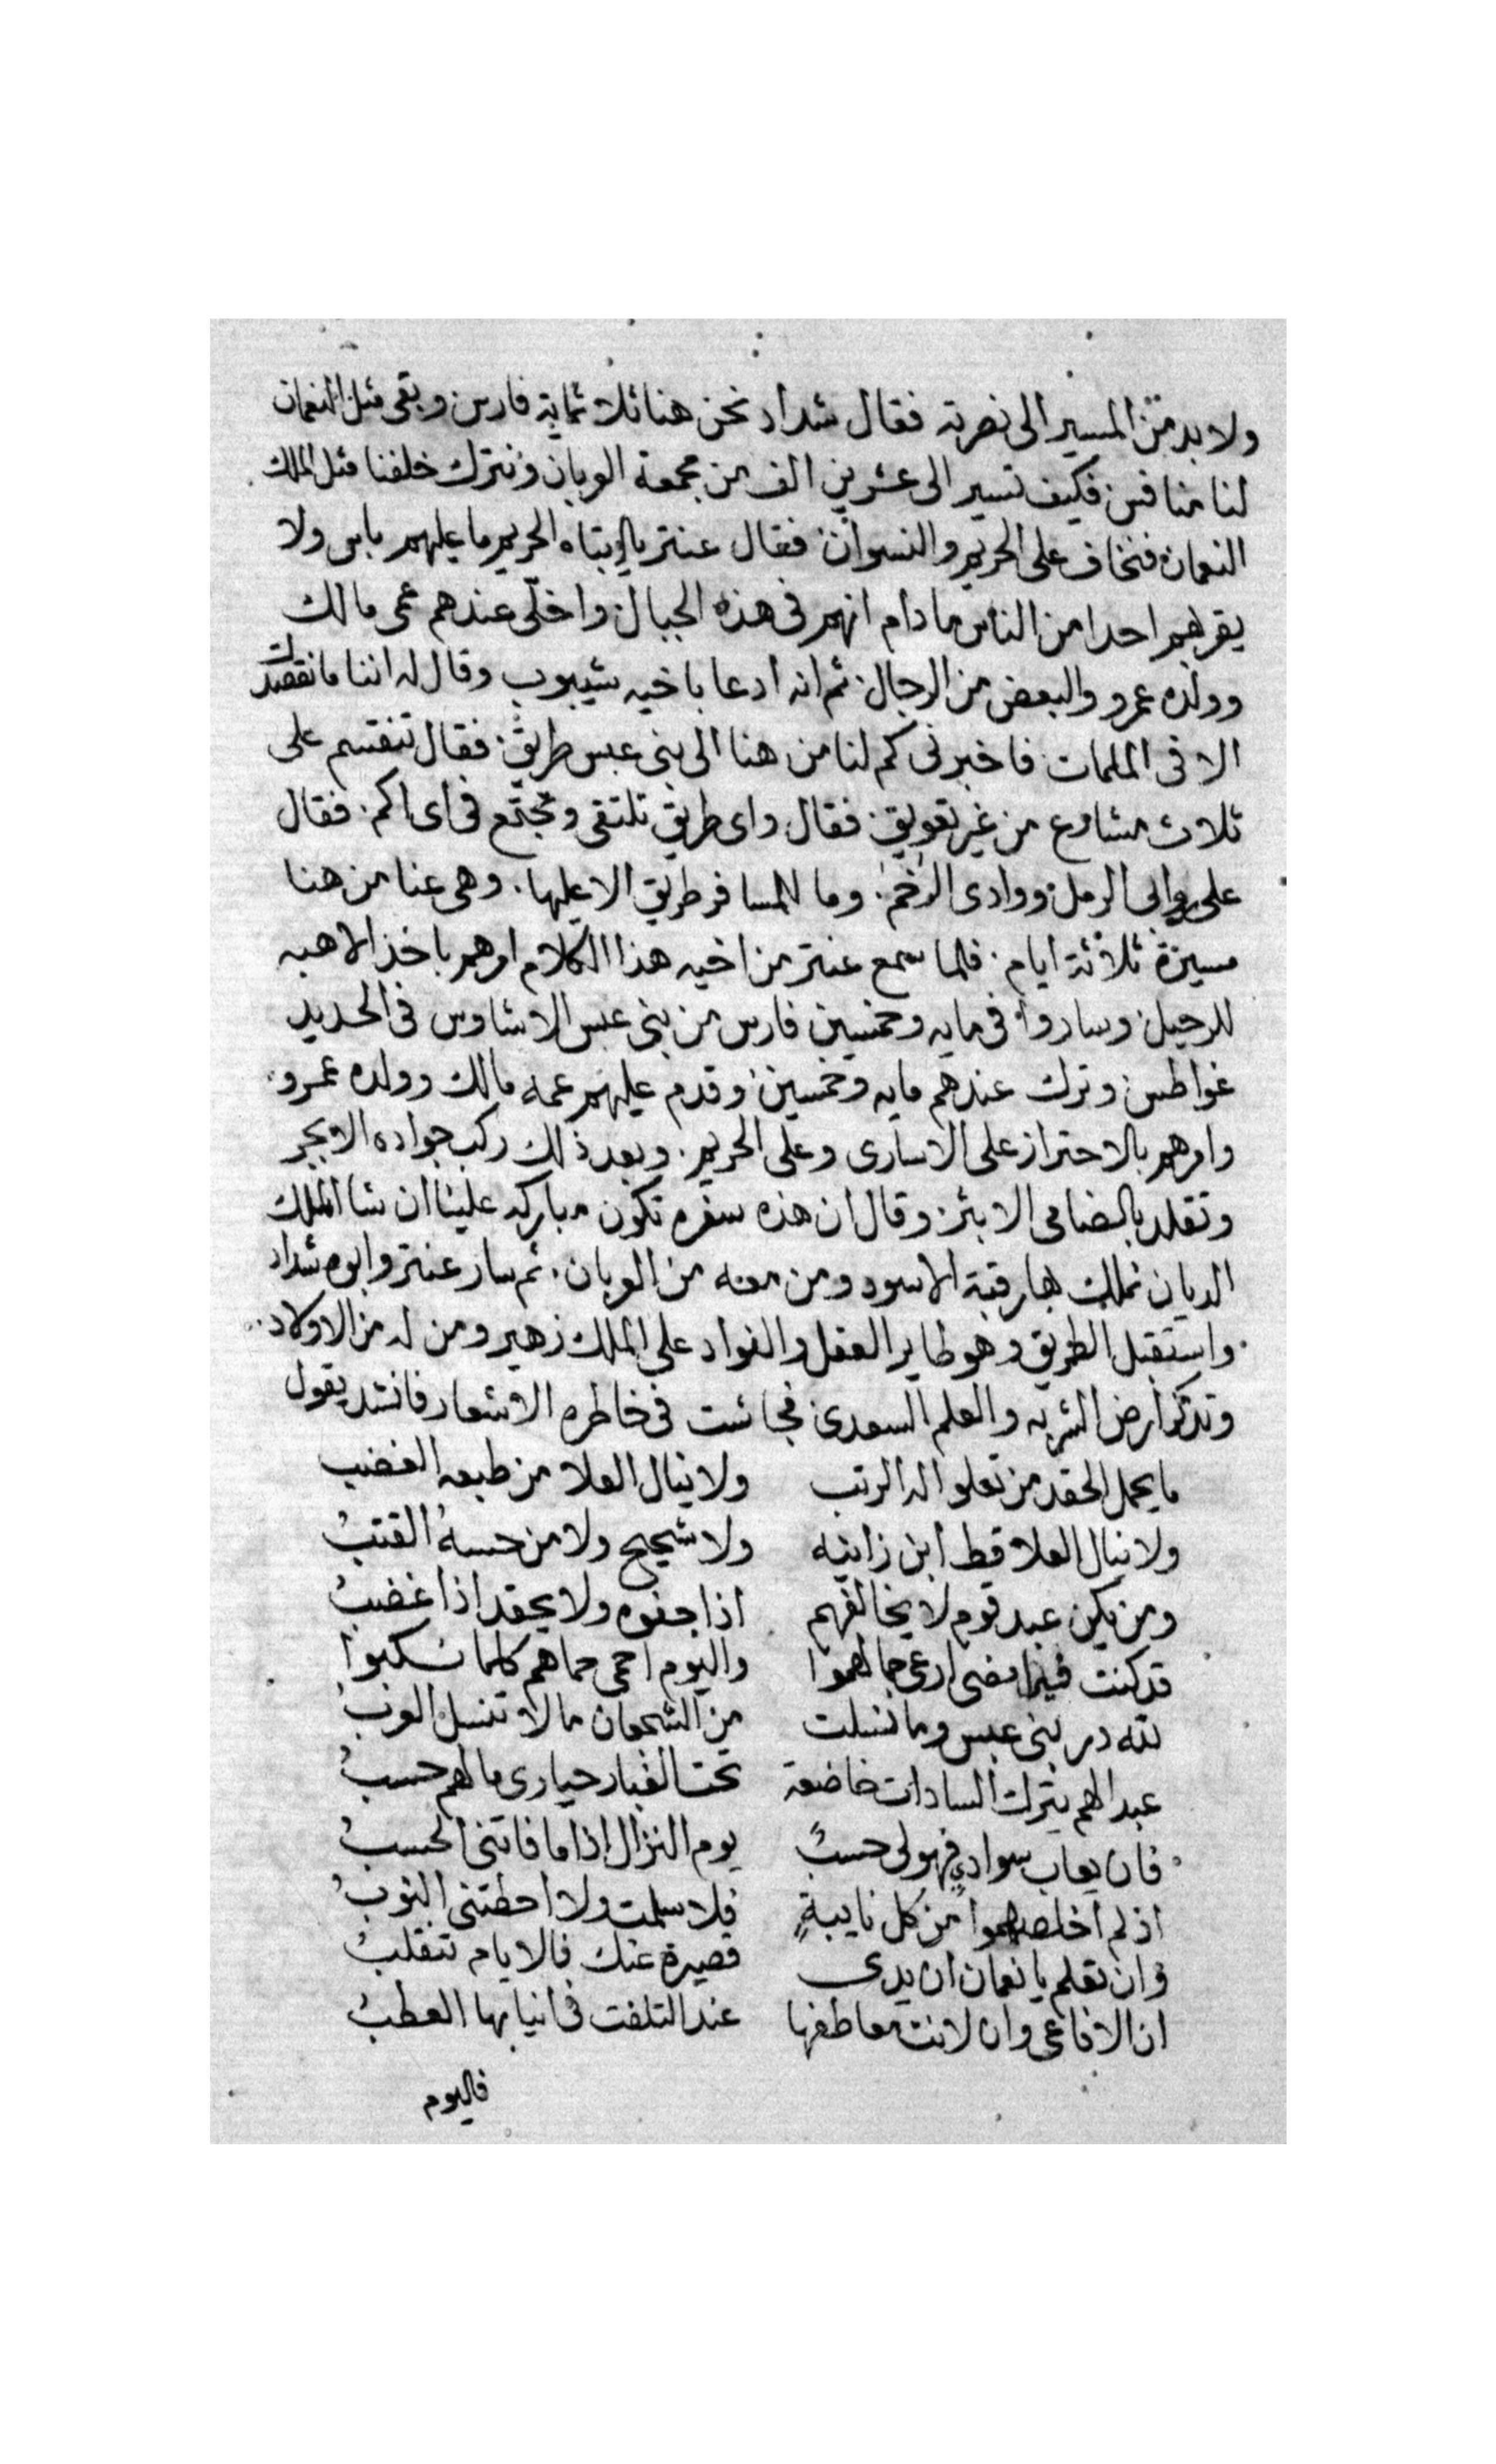 ولا بد من المسير الى نصرته فقال شداد نحن هنا ثلاثماية فارس وبقى مثل النعمان
لنا منافس فكيف تسير الى عشرين الف من جمعة العربان ونترك خلفنا مثل الملك
النعمان فنخاف على الحريم والنسوان فقال عنتر يا ابتاه الحريم ما عليهم باس ولا
يقربهم احدا من الناس ما دام انهم فى هذه الجبال واخلى عندهم عمى مالك
وولده عمرو والبعض من الرجال ثم انه ادعا باخيه شيبوب وقال له اننا ما نقصدك
الا فى الملمات فاخبرنى كم لنا من هنا الى بنى عبس طريق فقال تنقسم على
ثلاث مشارع من غير تعويق فقال واى طريق تلتقى وتجتمع فى اى اكم فقال
على روابى الرمل ووادى الرخم وما للمسافر طريق الا عليها وهى عنا من هنا
مسيرة ثلاثة ايام فلما سمع عنتر من اخيه هذا الكلام امرهم باخذ الاهبه
للرحيل وساروا فى مايه وخمسين فارس من بنى عبس الاشاوس فى الحديد
غواطس وترك عندهم مايه وخمسين وقدم عليهم عمه مالك وولده عمرو
وامرهم بالاحتراز على الاسارى وعلى الحريم وبعد ذلك ركب جواده الابجر
وتقلد بالضامى الابتر وقال ان هذه سفره تكون مباركه علينا ان شا الملك
الديان نملك بها رقبة الاسود ومن معه من العربان ثم سار عنتر وابوه شداد
واستقبل الطريق وهو طاير العقل والفواد على الملك زهير ومن له من الاولاد
وتذكر ارض الشربه والعلم السعدى فجاشت فى خاطره الاشعار فانشد يقول
ما يحمل الحقد من تعلو له الرتب ولا ينال العلا من طبعه الغضب
ولا ينال العلا قط ابن زانيه ولا شحيح ولا من حسبه القتب
ومن يكن عبد قوم لا يخالفهم اذا جفوه ولا يحقد اذا غضب
قد كنت فيما مضى ارعى جمالهموا واليوم احمى حماهم كلما نسكبوا
لله در بنى عبس وما نسلت من الشجعان ما لا تنسل العرب
عبدا لهم يترك السادات خاضعة تحت الغبار حيارى ما لهم حسب
فان يعاب سوادى فهو لى حسب يوم النزال اذا ما فاتنى الحسب
اذ لم اخلصهموا من كل نايبة فلا سلمت ولا احطتنى النوب
وان تعلم يا نعمان ان يدى قصيرة عنك فالايام تنقلب
ان الافاعى وان لانت معاطفها عند التلفت فى انيابها العطب
فاليوم